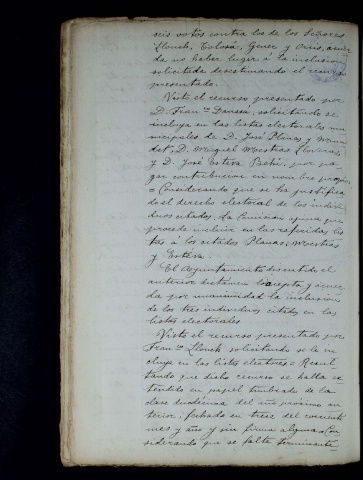 seis votos contra los de los Señores
Llonch, Tolosa, Giner y Oriis, acuer
da no haber lugar á la inclusion
solicitada desestimando el recurso
presentado.
Visto el recurso presentado por
D. Franco Danesa, solicitando se
incluya en las listas electorales mu
nicipales de D. José Planas y Mom
det, D. Miguel Mestras Lloveras
y D. José Esteva Bachs, por pa
gar contribucion en nombre propio,
= Considerando que se ha justifica
do el derecho electoral de los indivi
duos citados. La Comision opina que
procede incluir en las referidas lis
tas á los citados Planas, Mestras
y Esteva.
El Ayuntamiento discutido el
anterior dictamen lo acepta y acuer
da por unanimidad la inclusion
de los tres individuos citados en las
listas electorales
Visto el recurso presentado por
Franco Llonch solicitando se le in
cluya en las listas electores = Resul
tando que dicho recurso se halla es
tendido en papel timbrado de la
clase duodécima del año próximo an
terior, fechado en trece del corriente
mes y año y sin firma alguna = Con
siderando que se falta terminante